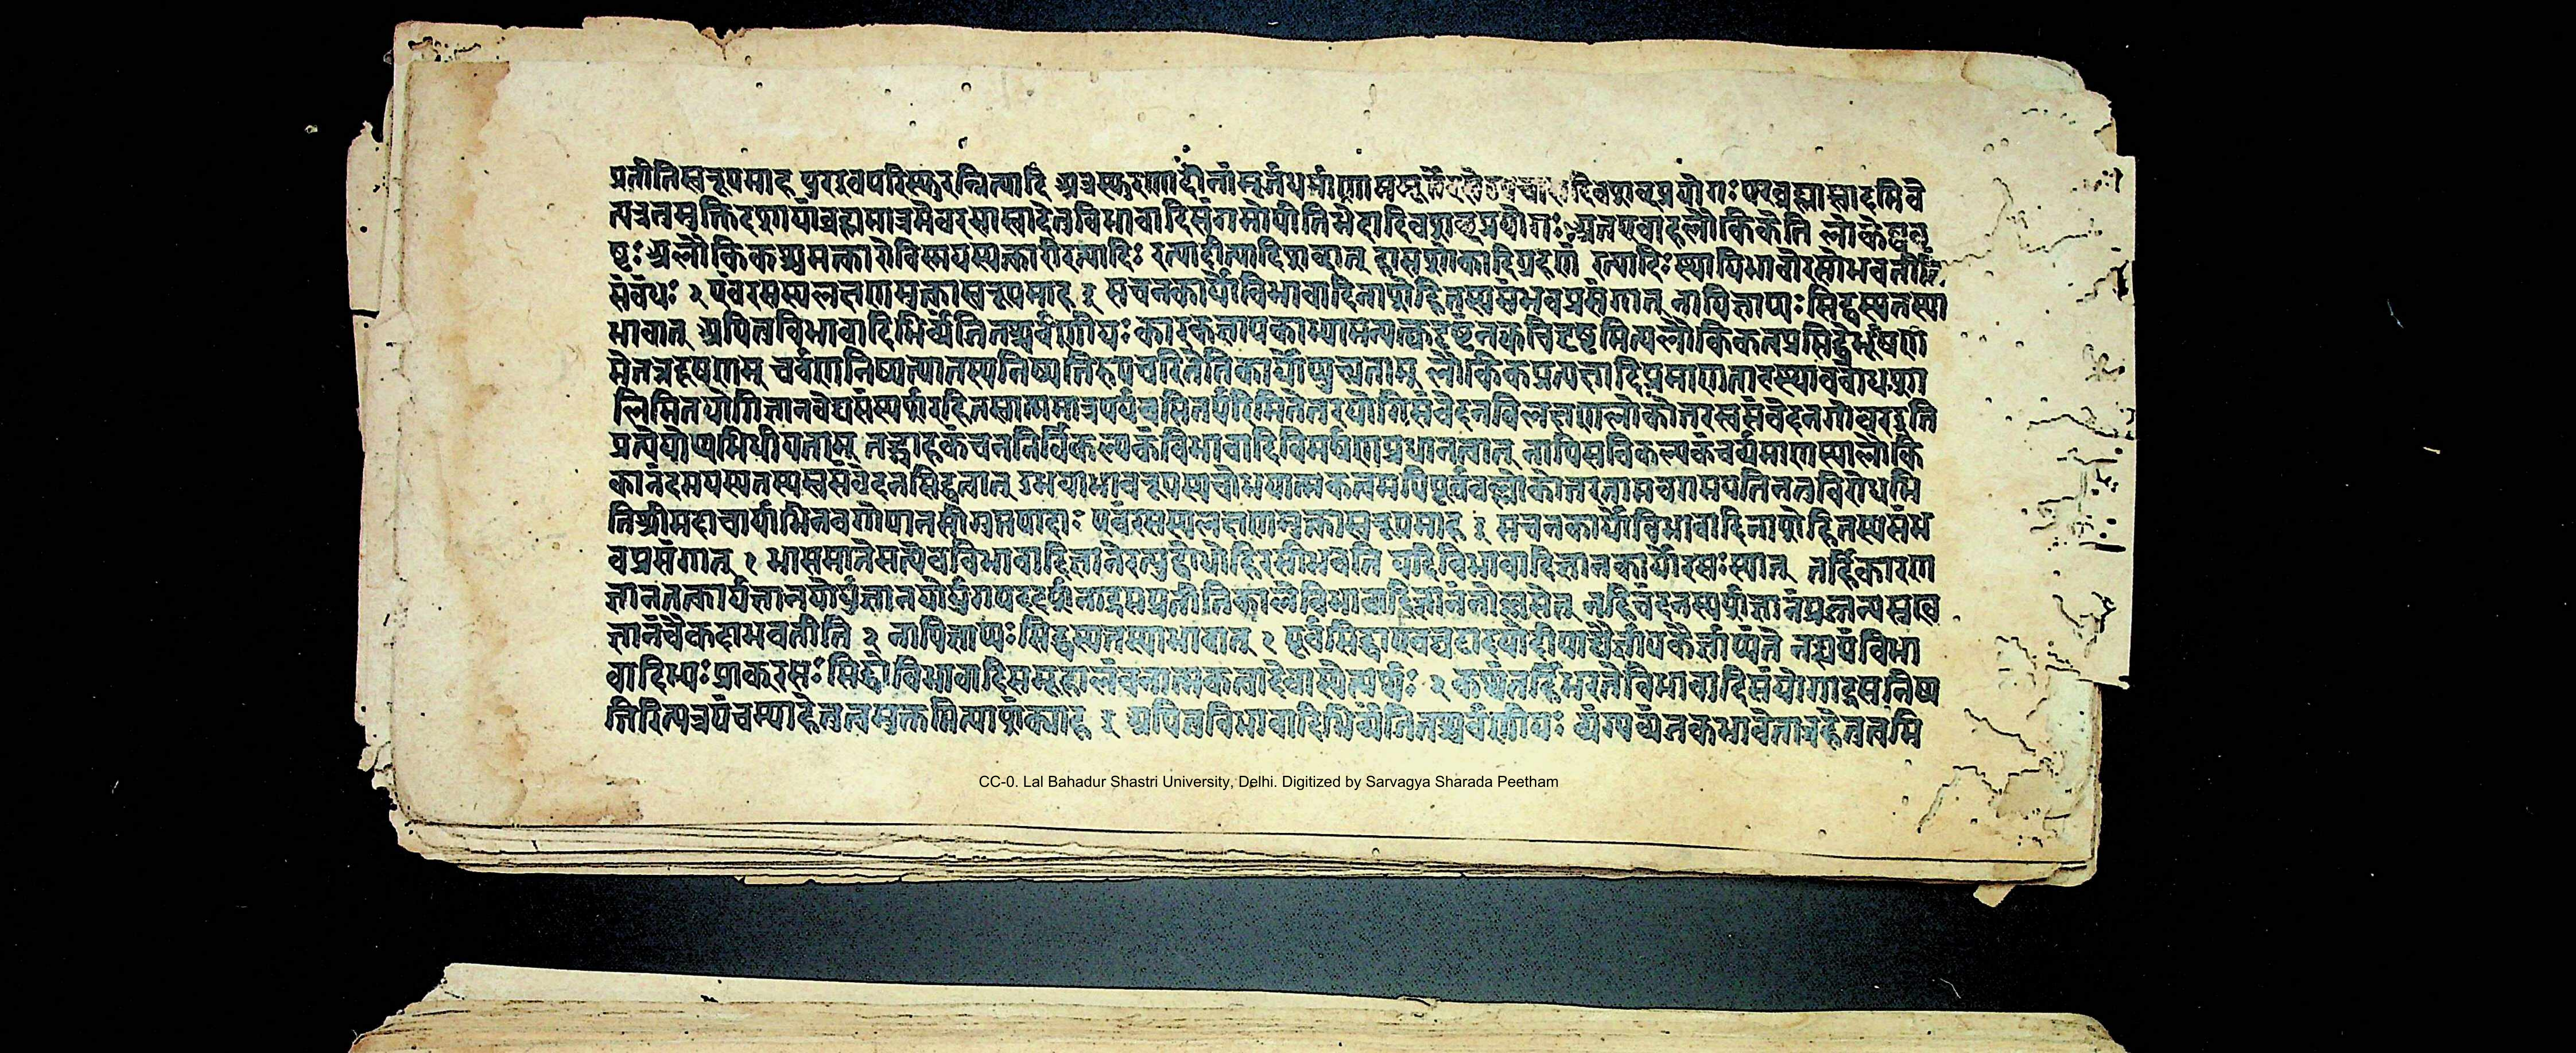 प्रतीतिस्वरूपमाह पुरइवपरिस्फुरन्नित्यादि अत्रस्फुरणादीनांमूर्तधर्माणाममूर्तेरसे दिवशब्दप्रयोगः परब्रह्मास्वादमिवे
त्यत्रतमुक्तिदशायांब्रह्ममात्रमेवरसास्वादेतुविभावादिसंगमोपीतिभेदादिवशब्दप्रयोगः अतएवाहलौकिकेति लोकेष्व
ष्टः अलौकिकश्चमत्कारोविस्मयस्यत्कारीरत्यादिः रत्यादीत्यादिशब्दात् हासशोकादिग्रहणं रत्यादिःस्थायिभावोरसोभवतीति
संबंधः २ एवंरसस्यलक्षणमुक्त्वास्वरूपमाह ३ सचनकार्योविभावादिनाशेहितस्यसंभवप्रसंगात् नापिज्ञाप्यःसिद्धस्यतस्या
भावात् अपितुविभावादिभिर्व्यंजितश्चर्वणीयः कारकज्ञापकाभ्यामन्यत्क्वदृष्टंनक्वचिद्दृष्टमित्यलौकिकत्वप्रसिद्धेर्भूषण
मेतन्नदूषणम् चर्वणानिष्पत्त्यातस्यनिष्पत्तिरुपचरितेतिकार्योप्युच्यताम् लौकिकप्रत्यक्षादिप्रमाणताटस्थ्यावबोधशा
लिमितयोगिज्ञानवेद्यसंस्पर्शरहितस्वात्ममात्रपर्यवसितपरिमितेतरयोगिसंवेदनविलक्षणलोकोत्तरस्वसंवेदनगोचरइति
प्रत्येयोप्यभिधीयताम् तद्ग्राहकंचननिर्विकल्पकंविभावादिविमर्षणप्रधानत्वात् नापिसविकल्पकंचर्व्यमाणस्यालौकि
कानंदमयस्यतस्यस्वसंवेदनसिद्धत्वात् उभयाभावरूपस्यचोभयात्मकत्वमपिपूर्ववल्लोकोत्तरतामवगमयतिनतुविरोधमि
तिश्रीमदाचार्याभिनवगोपानसीगुप्तपादाः एवंरसस्यलक्षणमुक्त्वास्वरूपमाह ३ सचनकार्योविभावादिनाशेहितस्यसंभ
वप्रसंगात् १ भासमानेसत्येवविभावादिज्ञानेरत्युद्बोधोहिरसीभवति यदिविभावादिज्ञानकार्योरसःस्यात् तर्हिकारण
ज्ञानतत्कार्यज्ञानयोर्युंज्ञानयोर्युगपददर्शनाद्रसप्रतीतिकालेविभावादिज्ञानंनोल्लसेत् नहिचंदनस्पर्शज्ञानंप्रत्यत्यसुख
ज्ञानंचैकदाभवतीति २ नापिज्ञाप्यःसिद्धस्यतस्याभावात् १ पूर्वंसिद्धाएवघटादयोदीपाद्यैर्ज्ञापकैर्ज्ञाप्यंते नह्ययंविभा
वादिभ्यःप्राकरसःसिद्धोविभावादिसमूहालंबनात्मकत्वादेवास्येत्यर्थः २ कथंतर्हिभरतेविभावादिसंयोगाद्रसनिष्प
त्तिरित्यत्रपंचम्याहेतुत्वमुक्तमित्याशंक्याह ३ अपितुविभावादिभिर्व्यंजितश्चर्वणीयः व्यंग्यव्यंजकभावेनात्रहेतुत्वमि
CC-0. Lal Bahadur Shastri University, Delhi. Digitized by Sarvagya Sharada Peetham